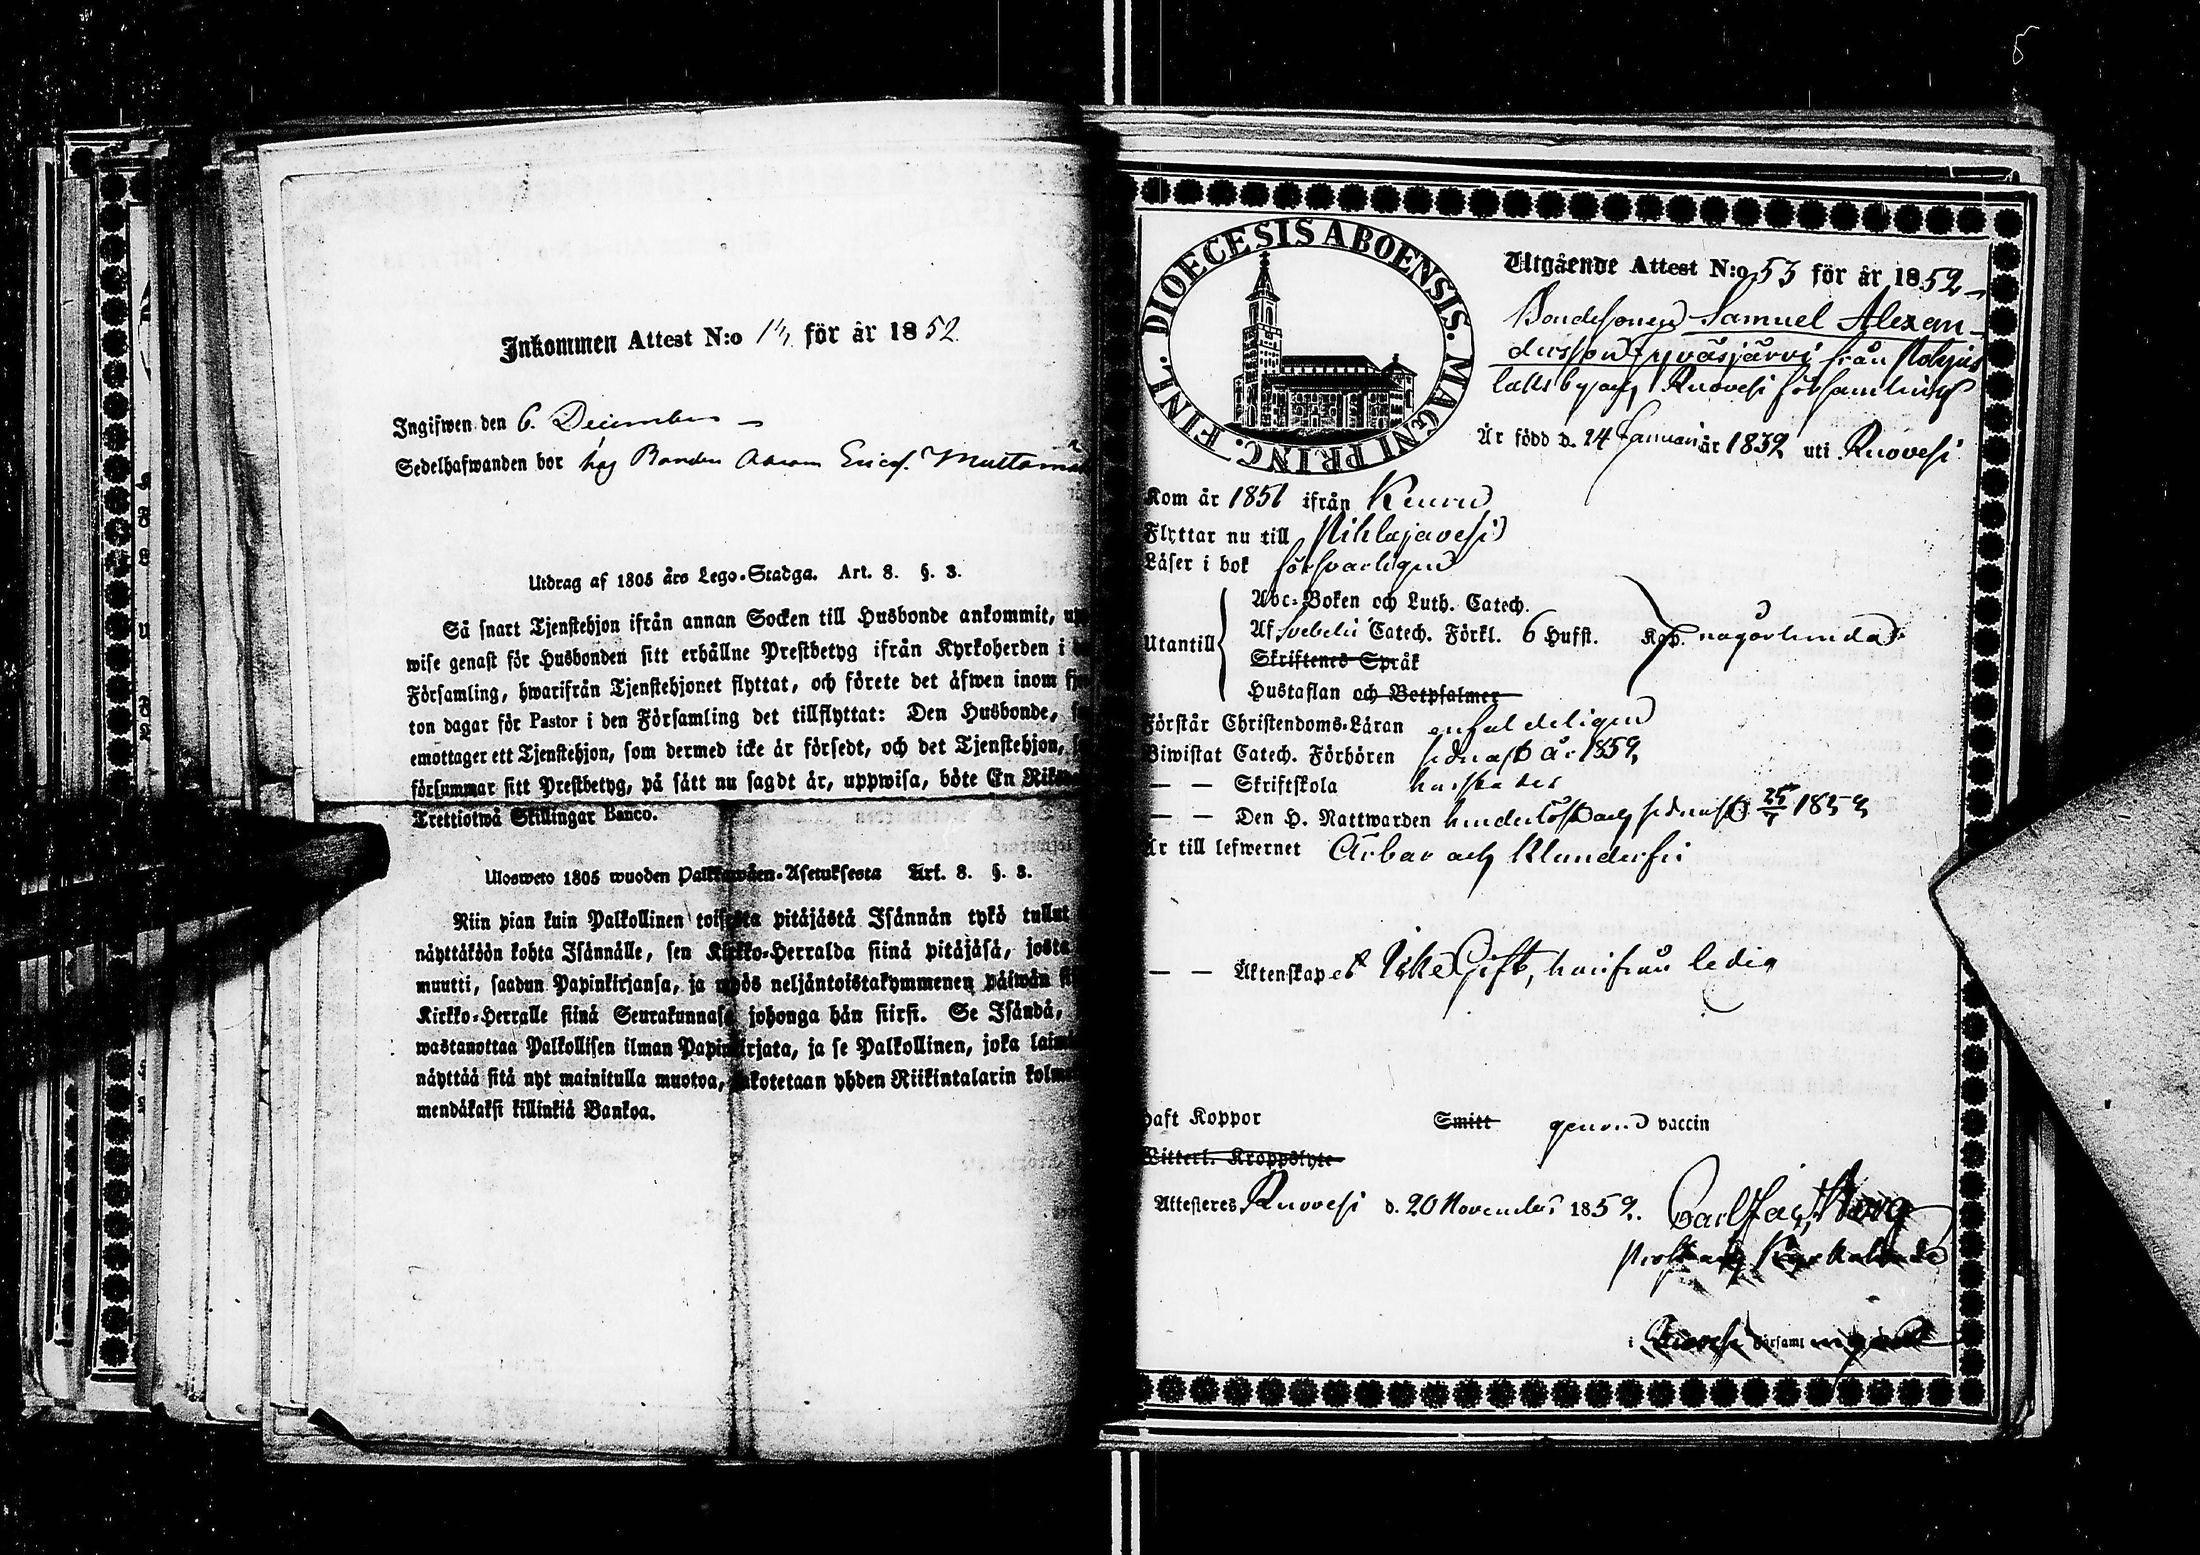 Inkommen Attest N:o 14 för år 1852.
Ingifwen den 6. December
Sedelhafwanden bor hos Bonden Abram Erics.
Utdrag af 1805 års Lego-Stadga. Art. 8. §. 3.
Så snart Tjenstehjon ifrån annan Socken till Husbonde ankommit,
wise genast för Husbonden sitt erhållne Prestbetyg ifrån Kyrkoherden i
Församling, hwarifrån Tjenstehjonet flyttat, och förete det äfwen inom
ton dagar för Pastor i den Församling det tillflyttat: Den Husbonde,
emottager ett Tjenstehjon, som dermed icke är försedt, och det Tjenstehjon,
försummar sitt Prestbetyg, på sätt nu sagdt är, uppwisa, böte En
Trettiotwå Skillingar Banco.
Ulosweto 1805 wuoden Palkkawäen-Asetuksesta Art. 8. §. 3.
Niin pian kuin Palkollinen toisesta pitäjästä Isännän tykö tullut
näyttäköön kohta Isännälle, sen Kirkko-Herralda siinä pitäjäsä, josta
muutti, saadun Papinkirjansa, ja myös neljäntoistakymmenen päiwän
Kirkko-Herralle siinä Seurakunnasa johonga hän siirsi. Se Isändä,
wastanottaa Palkollisen ilman Papinkirjata, ja se Palkollinen, joka
näyttää sitä nyt mainitulla muotoa, sakotetaan yhden Riikintalarin
mendäkaksi killinkiä Bankoa.
DIOECESIS ABOENSIS. MAGNI PRINC. FINL.
Utgående Attest N:o 53 för år 1852
Bondesonen Samuel Alexan-
dersson Hyväsjärvi från
by och Ruovesi församling
Är född d. 24 Januari år 1832 uti Ruovesi
Kom år 1851 ifrån Keuru
Flyttar nu till Pihlajavesi
Läser i bok försvarligen
Abc-Boken och Luth. Catech.
Utantill Af Svebelii Catech. Förkl. 6 Hufst. Kap. någorlunda
Skriftenes Språk
Hustaflan och Botpsalmer
Förstår Christendoms-Läran enfaldeligen
Biwistat Catech. Förhören sednast år 1852
— — Skriftskola
— — Den H. Nattwarden hinderlöst och sednast 25/7 1852
Är till lefwernet Ärbar och klanderfri
— — Äktenskapet Icke Gift, härifrån ledig
Haft Koppor Smitt genom vaccin
Witterl. Kroppslyte
Attesteres Ruovesi d. 20 November 1852.
Prost och Kyrkoherde
i Ruovesi Församl